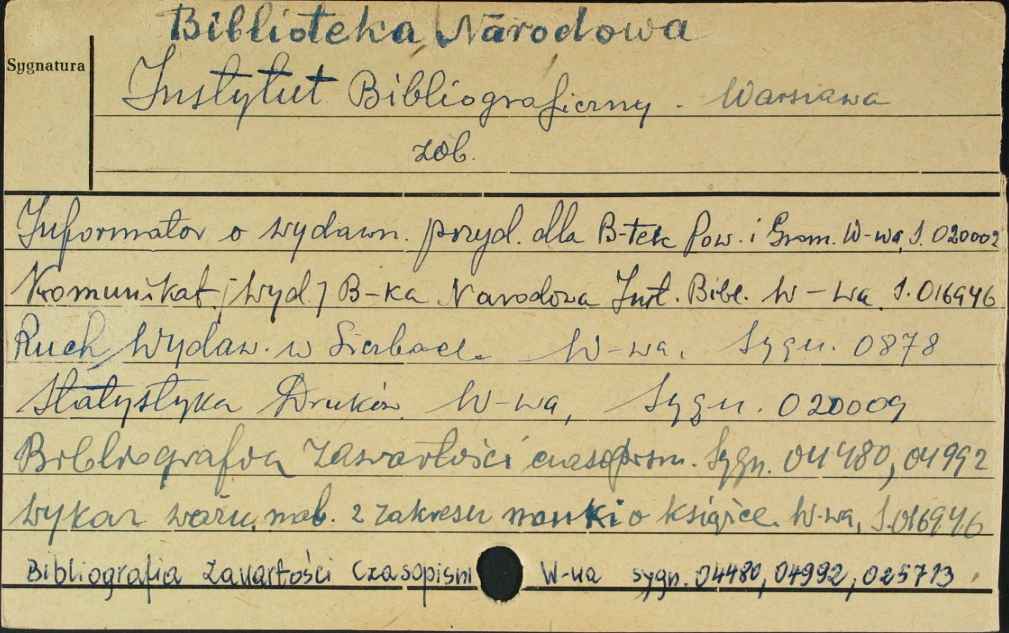 Biblioteka Narodowa
Sygnatura
Instytut Bibliograficzny. Warszawa
zob.
Informator o wydawn. przyd. dla B-tek Pow. i Grom. W-wa, S. 020002
Komunikat / wyd / B-ka Narodowa Inst. Bibl. W-wa S. 016946
Ruch Wydaw. w liczbach. W-wa, Sygn. 0878
Statystyka Druków. W-wa, Sygn. 020009
Bibliografia zawartości czasopism. Sygn. 04480, 04992
Wykaz ważn. nab. z zakresu nauki o książce. W-wa, S. 016946
Bibliografia Zawartości Czasopism W-wa sygn. 04480, 04992, 025713